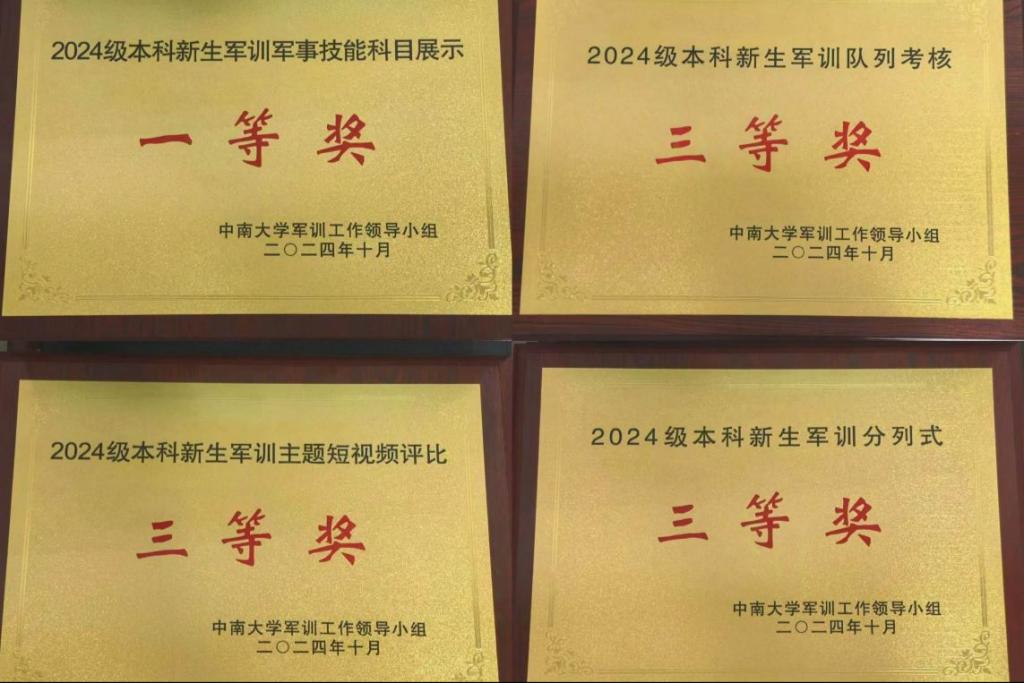 2024级本科新生军训军事技能科目展示
一等奖
中南大学军训工作领导小组
二〇二四年十月
2024级本科新生军训队列考核
三等奖
中南大学军训工作领导小组
二〇二四年十月
2024级本科新生军训主题短视频评比
三等奖
中南大学军训工作领导小组
二〇二四年十月
2024级本科新生军训分列式
三等奖
中南大学军训工作领导小组
二〇二四年十月